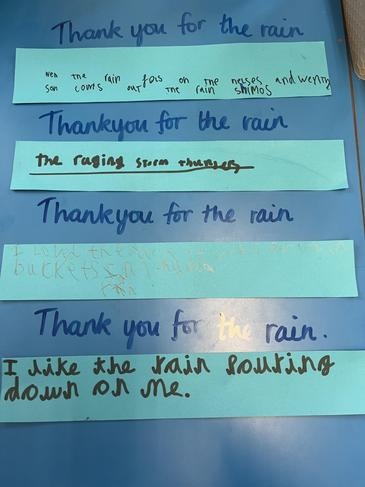 Thank you for the rain
wen the rain fors on the neses and wenthy
son coms out the rain shimos
Thankyou for the rain
the raging storm thunders
Thankyou for the rain
I
buckets
rain
Thank you for the rain.
I like the rain pouring
down on me.